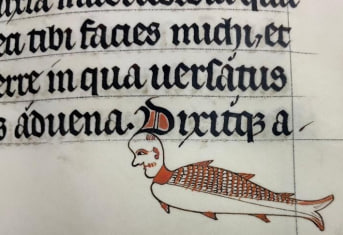 ea tibi facies michi, et
erre in qua uersátus
s áduena. Dixitqꝫ a